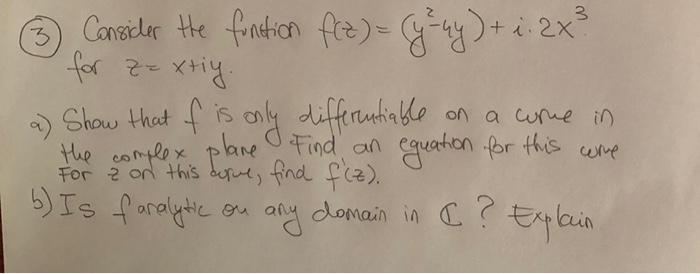 ③ Consider the function f(z) = (y²-4y) + i. 2x³.
for z = x+iy.
a) Show that f is only differentiable on a curve in
the complex plane. Find an equation for this curve
For z on this curve, find f'(z).
b) Is f analytic on any domain in ℂ? Explain